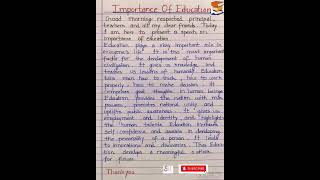 Importance Of Education
Good morning respected principal,
teachers and all my dear friends. Today
I am here to present a speech on
importance of education.
Education plays a very important role in
everyone's life. It is the most important
factor for the development of human
civilization. It gives us knowledge and
teaches us lessons of humanity. Education
tells man how to think, how to work
properly, how to make decision. It
thoughts in human beings.
Education provides the nation with man
power, promotes national unity and
uplifts public awareness. It gives us
employment and identity and highlights
the human talents. Education
self confidence and assists in developing
the personality of a person. It leads
to innovations and discoveries. Thus Educa-
tion develops a meaningful
for future.
Thank you